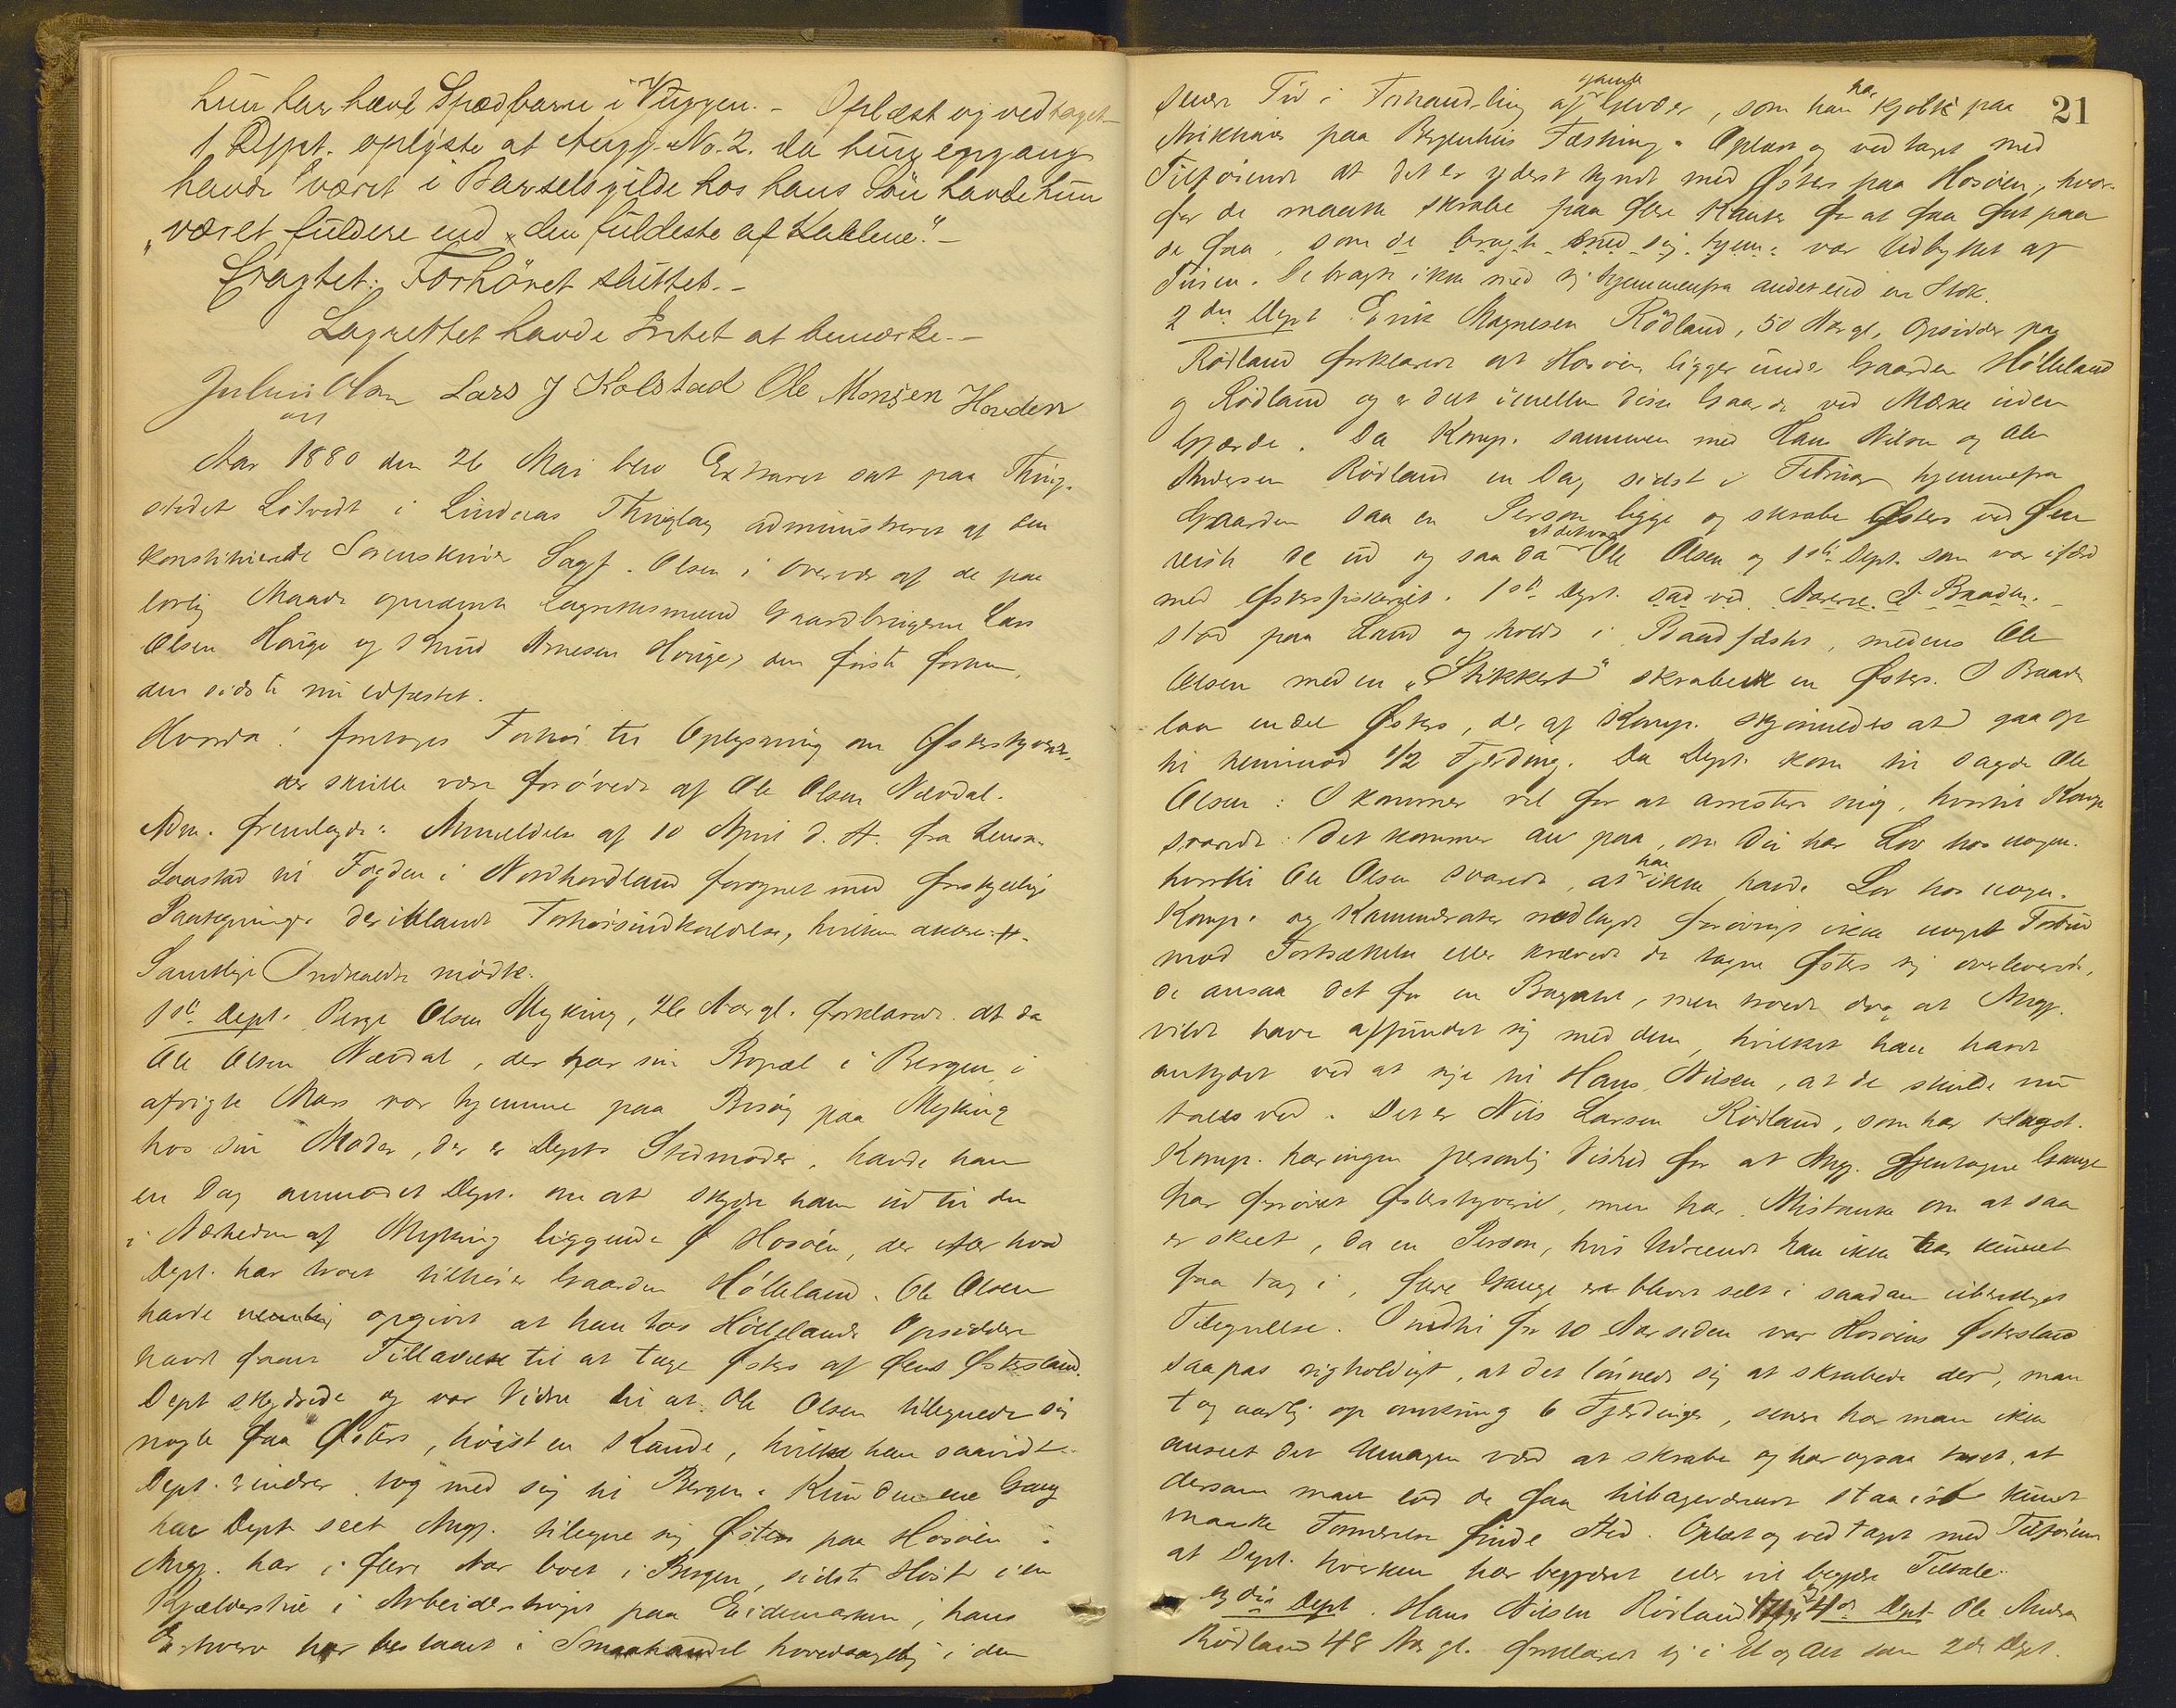 hun har havt Spædbarn i Vuggen. – Oplæst og vedtaget –
1 Dept. oplyste at Angj. No. 2. da hun engang
havde været i Barselsgilde hos hans Sön havde hun
"været fuldere end "den fuldeste af Kallene." –
Eragtet: Forhöret sluttet. –
Lagrettet havde Intet at bemærke. –
Julius Olsen Lars J Kolstad Ole Monsen Hovden
Aar 1880 den 26 Mai blev Extraret sat paa Thing-
stedet Lötvedt i Lindaas Thinglag administreret af den
konstituerede Sorenskriver Sagf. Olsen i Overvær af de paa
lovlig Maade opnævnte Lagrettesmænd Gaardbrugerne Lars
Olsen Hauge og Knud Arnesen Hauge, den förste forhen,
den sidste nu edfæstet.
Hvorda: foretages Forhör til Oplysning om Österstyveri,
der skulle være forövede af Ole Olsen Nævdal.
Adm. fremlagde: Anmeldelse af 10 April d. A. fra Lensm.
Lanstad til Fogden i Nordhordland forsynet med forskjellige
Paategninger deriblandt Forhörsindkaldelse, hvilken
Samtlige Indkaldte mödte.
1ste Dept. Börge Olsen Myking, 26 Aar gl. forklarede at da
Ole Olsen Nævdal, der har sin Bopæl i Bergen, i
afvigte Mars var hjemme paa Besög paa Myking
hos sin Moder, der er Depts Stedmoder, havde han
en Dag anmodet Dept. om at skydse ham ud til den
i Nærheden af Myking liggende Ö Hosöen, der efter hvad
Dept. har troet tilhörer Gaarden Hölleland. Ole Olsen
havde nemlig opgivet at han hos Höllelands Opsiddere
havde faaet Tilladelse til at tage Östers af Öens Östersland.
Dept skydsede og var Vidne til at Ole Olsen tilegnede sig
nogle faa Östers, höist en Kande, hvilke han saavidt
Dept. erindrer tog med sig til Bergen. Kun den ene Gang
har Dept seet Angj. tilegne sig Östers paa Hosöen.
Angj. har i flere Aar boet i Bergen, sidste Höst i en
Kjælderstue i Arbeiderströget paa Eidemarken; hans
Erhverv har bestaaet i Smaahandel hovedsagelig i den
21
senere Tid i Forhandling af gamle Geværer, som han har kjöbt paa
Auktioner paa Bergenhus Fæstning. Oplæst og vedtaget med
Tilföiende at det er yderst tyndt med Östers paa Hosöen, hvor-
for de maatte skrabe paa flere Kanter for at faa fat paa
de faa, som de bragte med sig hjem: var Udbyttet af
Turen. De bragte ikke med sig hjemmenfra andet end en Stok.
2den Dept Erik Magnesen Rödland, 50 Aar gl, Opsidder paa
Rödland forklarede at Hosöen ligger under Gaarden Hölleland
og Rödland og er delt imellem disse Gaarde ved Mærke uden
Gjærde. Da Komp. sammen med Hans Nilsen og Ole
Andersen Rödland en Dag sidst i Februar hjemmefra
Gaarden saa en Person ligge og skrabe Östers ved Öen
reiste de ud og saa da at det var Ole Olsen og 1ste Dept. som var ifærd
med Östersfiskeriet. 1ste Dept. sad ved Aarene i Baaden. –
stod paa Land og holdt i Baadfæstet, medens Ole
Olsen med en "Stikkert" skrabede en Östers. I Baaden
laa endel Östers, der af Komp. skjönnedes at gaa op
til henimod 1/2 Fjerding. Da Dept. kom til sagde Ole
Olsen: I kommer vel for at arrestere mig, hvortil Komp
svarede: Det kommer an paa, om Du har Lov hos nogen.
hvortil Ole Olsen svarede, at han ikke havde Lov hos nogen.
Komp. og Kammerater nedlagde forövrigt ikke noget Forbud
mod Fortsættelse eller krævede de tagne Östers sig overleverede,
de ansaa det for en Bagatel, men troede dog at Angj.
vilde have affundet sig med dem, hvilket han havde
antydet ved at sige til Hans Nilsen, at de skulde nu
tales ved. Det er Nils Larsen Rödland, som har klaget.
Komp. har ingen personlig Vished for at Angj. gjentagne Gange
har forövet Österstyveri, men har Mistanke om at saa
er skeet, da en Person, hvis Udseende han ikke har kunnet
faa tag i, flere Gange er blevet seet i saadan uberettiget
Tilegnelse. Indtil for 10 Aar siden var Hosöens Östersland
saapas righoldigt, at det lönnede sig at skrabede der, man
tog aarlig op omkring 6 Fjerdinger, senere har man ikke
anseet det Umagen værd at skrabe og har ogsaa troet, at
dersom man lod de faa tilbageværende staa ist kunde
maaske Formerelse finde Sted. Oplæst og vedtaget med Tilföiende
at Dept. hverken har begjæret eller vil begjære Tiltale.
Dept. Hans Nilsen Rödland og 4de Dept Ole Anders
Rödland 48 Aar gl. forklarede sig i Et og Alt som 2den Dept.